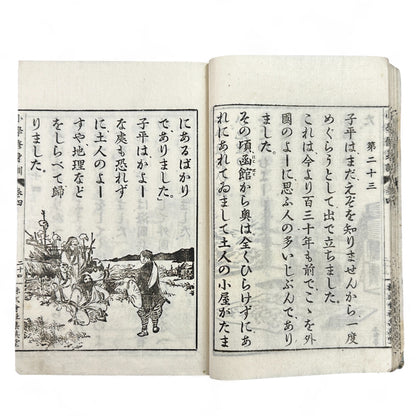 第二十三
子平は、まだ、えぞを知りませんから、一度
めぐらうとして出で立ちました。
これは今より百三十年も前で、こゝを外
國のよーに思ふ人の多いじぶんであり
ました。
その頃函館から奥は全くひらけずにあ
れにあれてゐまして土人の小屋がたま
にあるばかり
でありました。
子平は、かよー
な處も恐れず
に土人のよー
すや、地理など
をしらべて歸
りました。
卷四
二十四